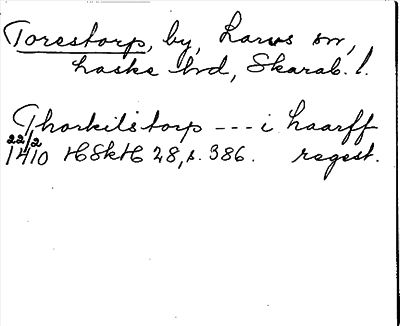 Torestorp, by, Larvs sn,
Laske hd, Skarab. l.
Thorkilstorp --- i Haarff
22/2
1410 HSkH 28, s. 386. regest.